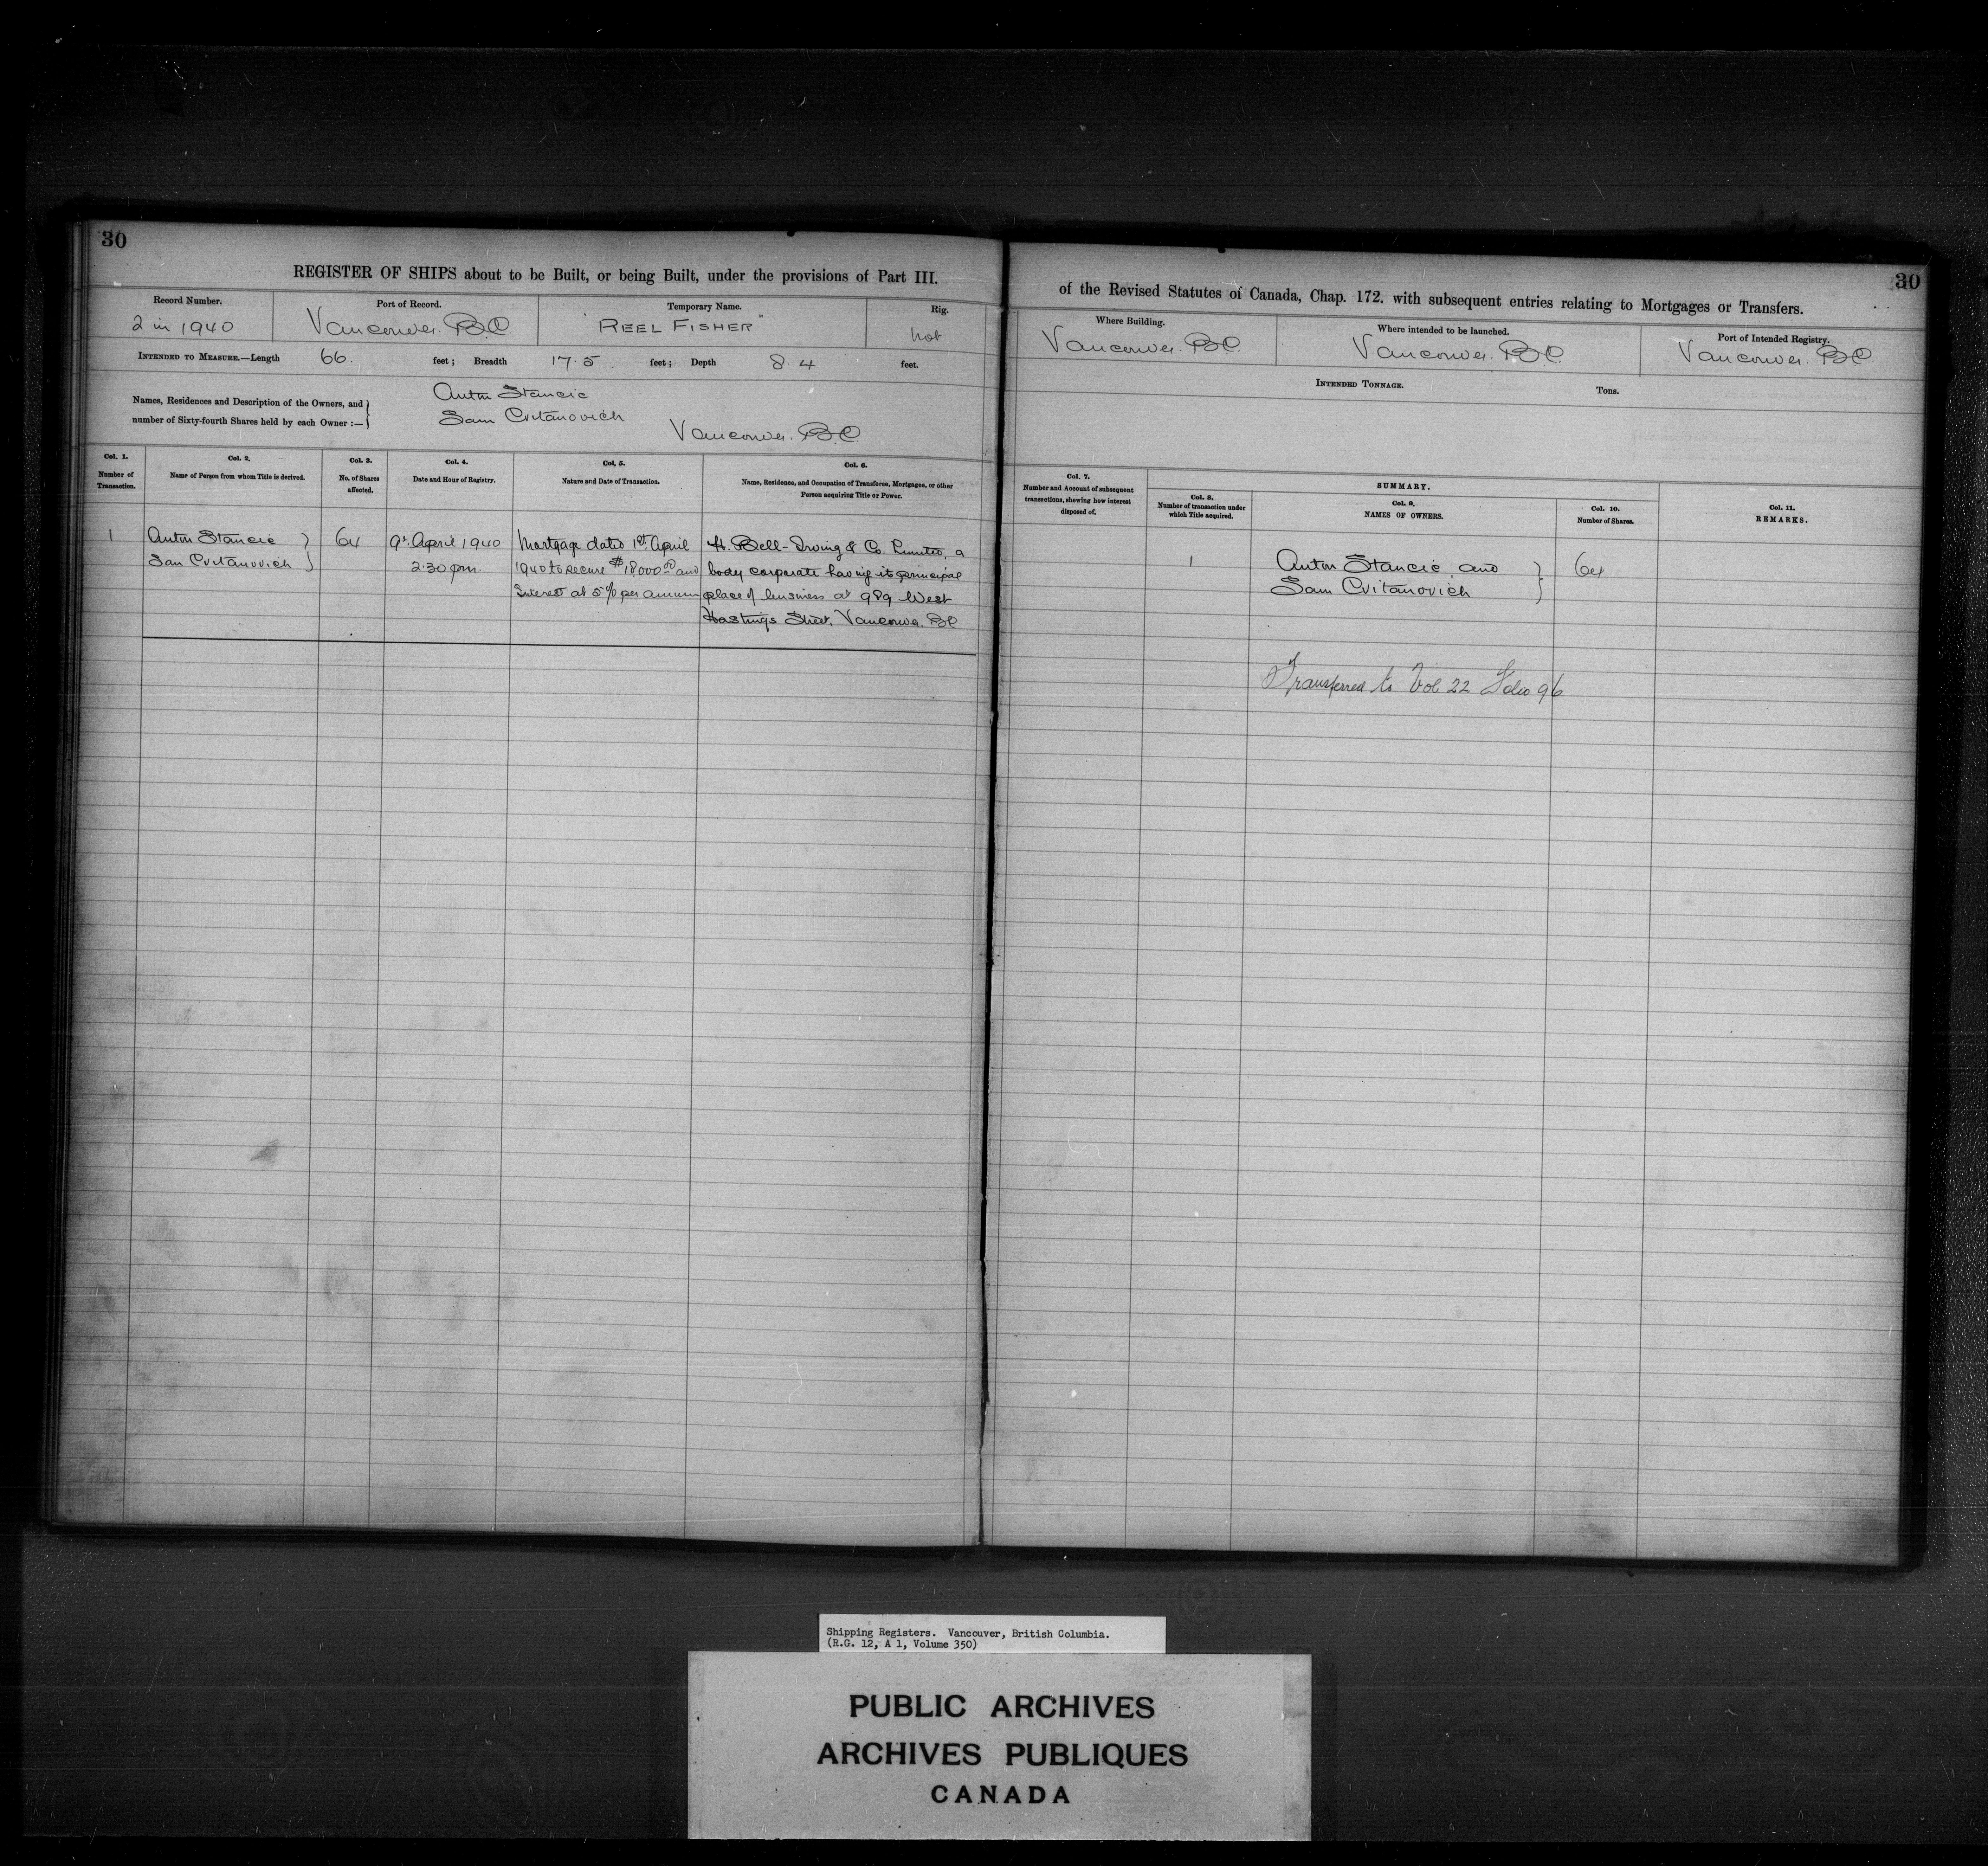 30
REGISTER OF SHIPS about to be Built, or being Built, under the provisions of Part III.
Record Number.
2 in 1940
Port of Record.
Vancouver. B.C.
Temporary Name.
"REEL FISHER"
Rig.
not
INTENDED TO MEASURE.—Length 66. feet; Breadth 17.5 feet; Depth 8.4 feet.
Names, Residences and Description of the Owners, and number of Sixty-fourth Shares held by each Owner :—
Anton Stancic
Sam Cvitanovich
Vancouver. B.C.
Col. 1.
Number of Transaction.
Col. 2.
Name of Person from whom Title is derived.
Col. 3.
No. of Shares affected.
Col. 4.
Date and Hour of Registry.
Col. 5.
Nature and Date of Transaction.
Col. 6.
Name, Residence, and Occupation of Transferee, Mortgagee, or other Person acquiring Title or Power.
1
Anton Stancic
Sam Cvitanovich
64
9. April 1940
2.30 pm.
Mortgage dated 1st April
1940 to secure $18,000.00 and
Interest at 5% per annum
H. Bell-Irving & Co. Limited, a
body corporate having its principal
place of business at 989 West
Hastings Street. Vancouver. BC
30
of the Revised Statutes of Canada, Chap. 172. with subsequent entries relating to Mortgages or Transfers.
Where Building.
Vancouver B.C.
Where intended to be launched.
Vancouver. B.C.
Port of Intended Registry.
Vancouver. B.C.
INTENDED TONNAGE.
Tons.
Col. 7.
Number and Account of subsequent transactions, shewing how interest disposed of.
SUMMARY.
Col. 8.
Number of transaction under which Title acquired.
Col. 9.
NAMES OF OWNERS.
Col. 10.
Number of Shares.
Col. 11.
REMARKS.
1
Anton Stancic, and
Sam Cvitanovich
64
Transferred to Vol 22 Folio 96
Shipping Registers. Vancouver, British Columbia.
(R.G. 12, A 1, Volume 350)
PUBLIC ARCHIVES
ARCHIVES PUBLIQUES
CANADA